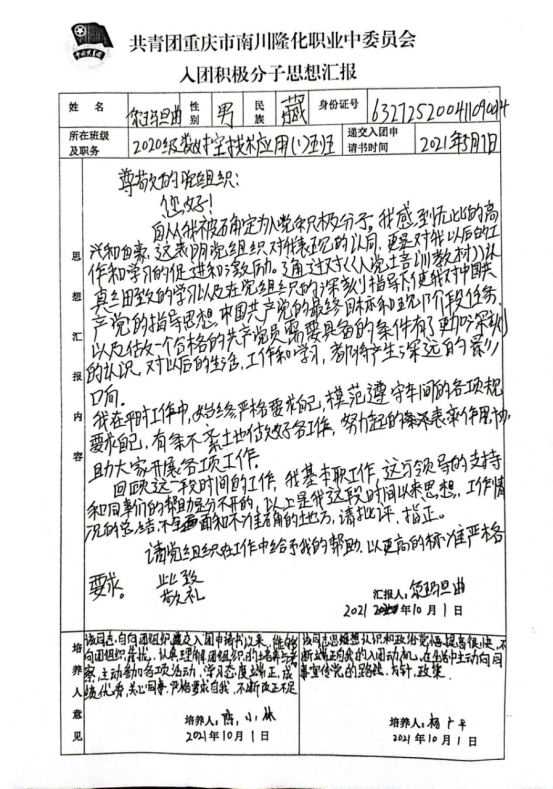 共青团重庆市南川隆化职业中委员会
入团积极分子思想汇报
姓名 玛旦曲 性别 男 民族 藏 身份证号
所在班级及职务 2020级数控技术应用(1)班 递交入团申请书时间 2021年5月7日
思想汇报内容
尊敬的党组织:
您好!
自从我被确定为入党积极分子,我感到无比的高
兴和自豪,这表明党组织对我表现的认同,更是对我以后的工
作和学习的促进和激励。通过对《入党培训教材》认
真细致的学习以及在党组织的深刻指导下使我对中国共
产党的指导思想,中国共产党的最终目标和现阶段任务,
以及估做一个合格的共产党员需要具备的条件有了更加深刻
的认识,对以后的生活,工作和学习,都将产生深远的影
响。
我在平时工作中,始终严格要求自己,模范遵守车间的各项规
要求自己,有条不紊地做好各工作,努力起的表率作用,协
助大家开展各项工作。
回顾这一段时间的工作,我基本职工作,这与领导的支持
和同事们的帮助是分不开的,以上是我这段时间以来思想,工作情
况的总结,不全面和不准确的地方,请批评,指正。
请党组织在工作中给予我的帮助,以更高的标准严格
要求。 此致
敬礼
汇报人: 玛旦曲
2021 年10月1日
培养人意见
该同志,自向团组织递交入团申请书以来,能够
向团组织靠拢,认真理解团组织的培养与考
察,主动参加各项活动,学习态度端正,成
绩优秀,关心同事,严格要求自我,不断改正不足
培养人:陈小林
2021年10月1日
该同志思想认识和政治觉悟提高很快,不
断端正自我的入团动机,在生活中主动向同
事宣传党的路线,方针,政策.
培养人:杨广平
2021年10月1日